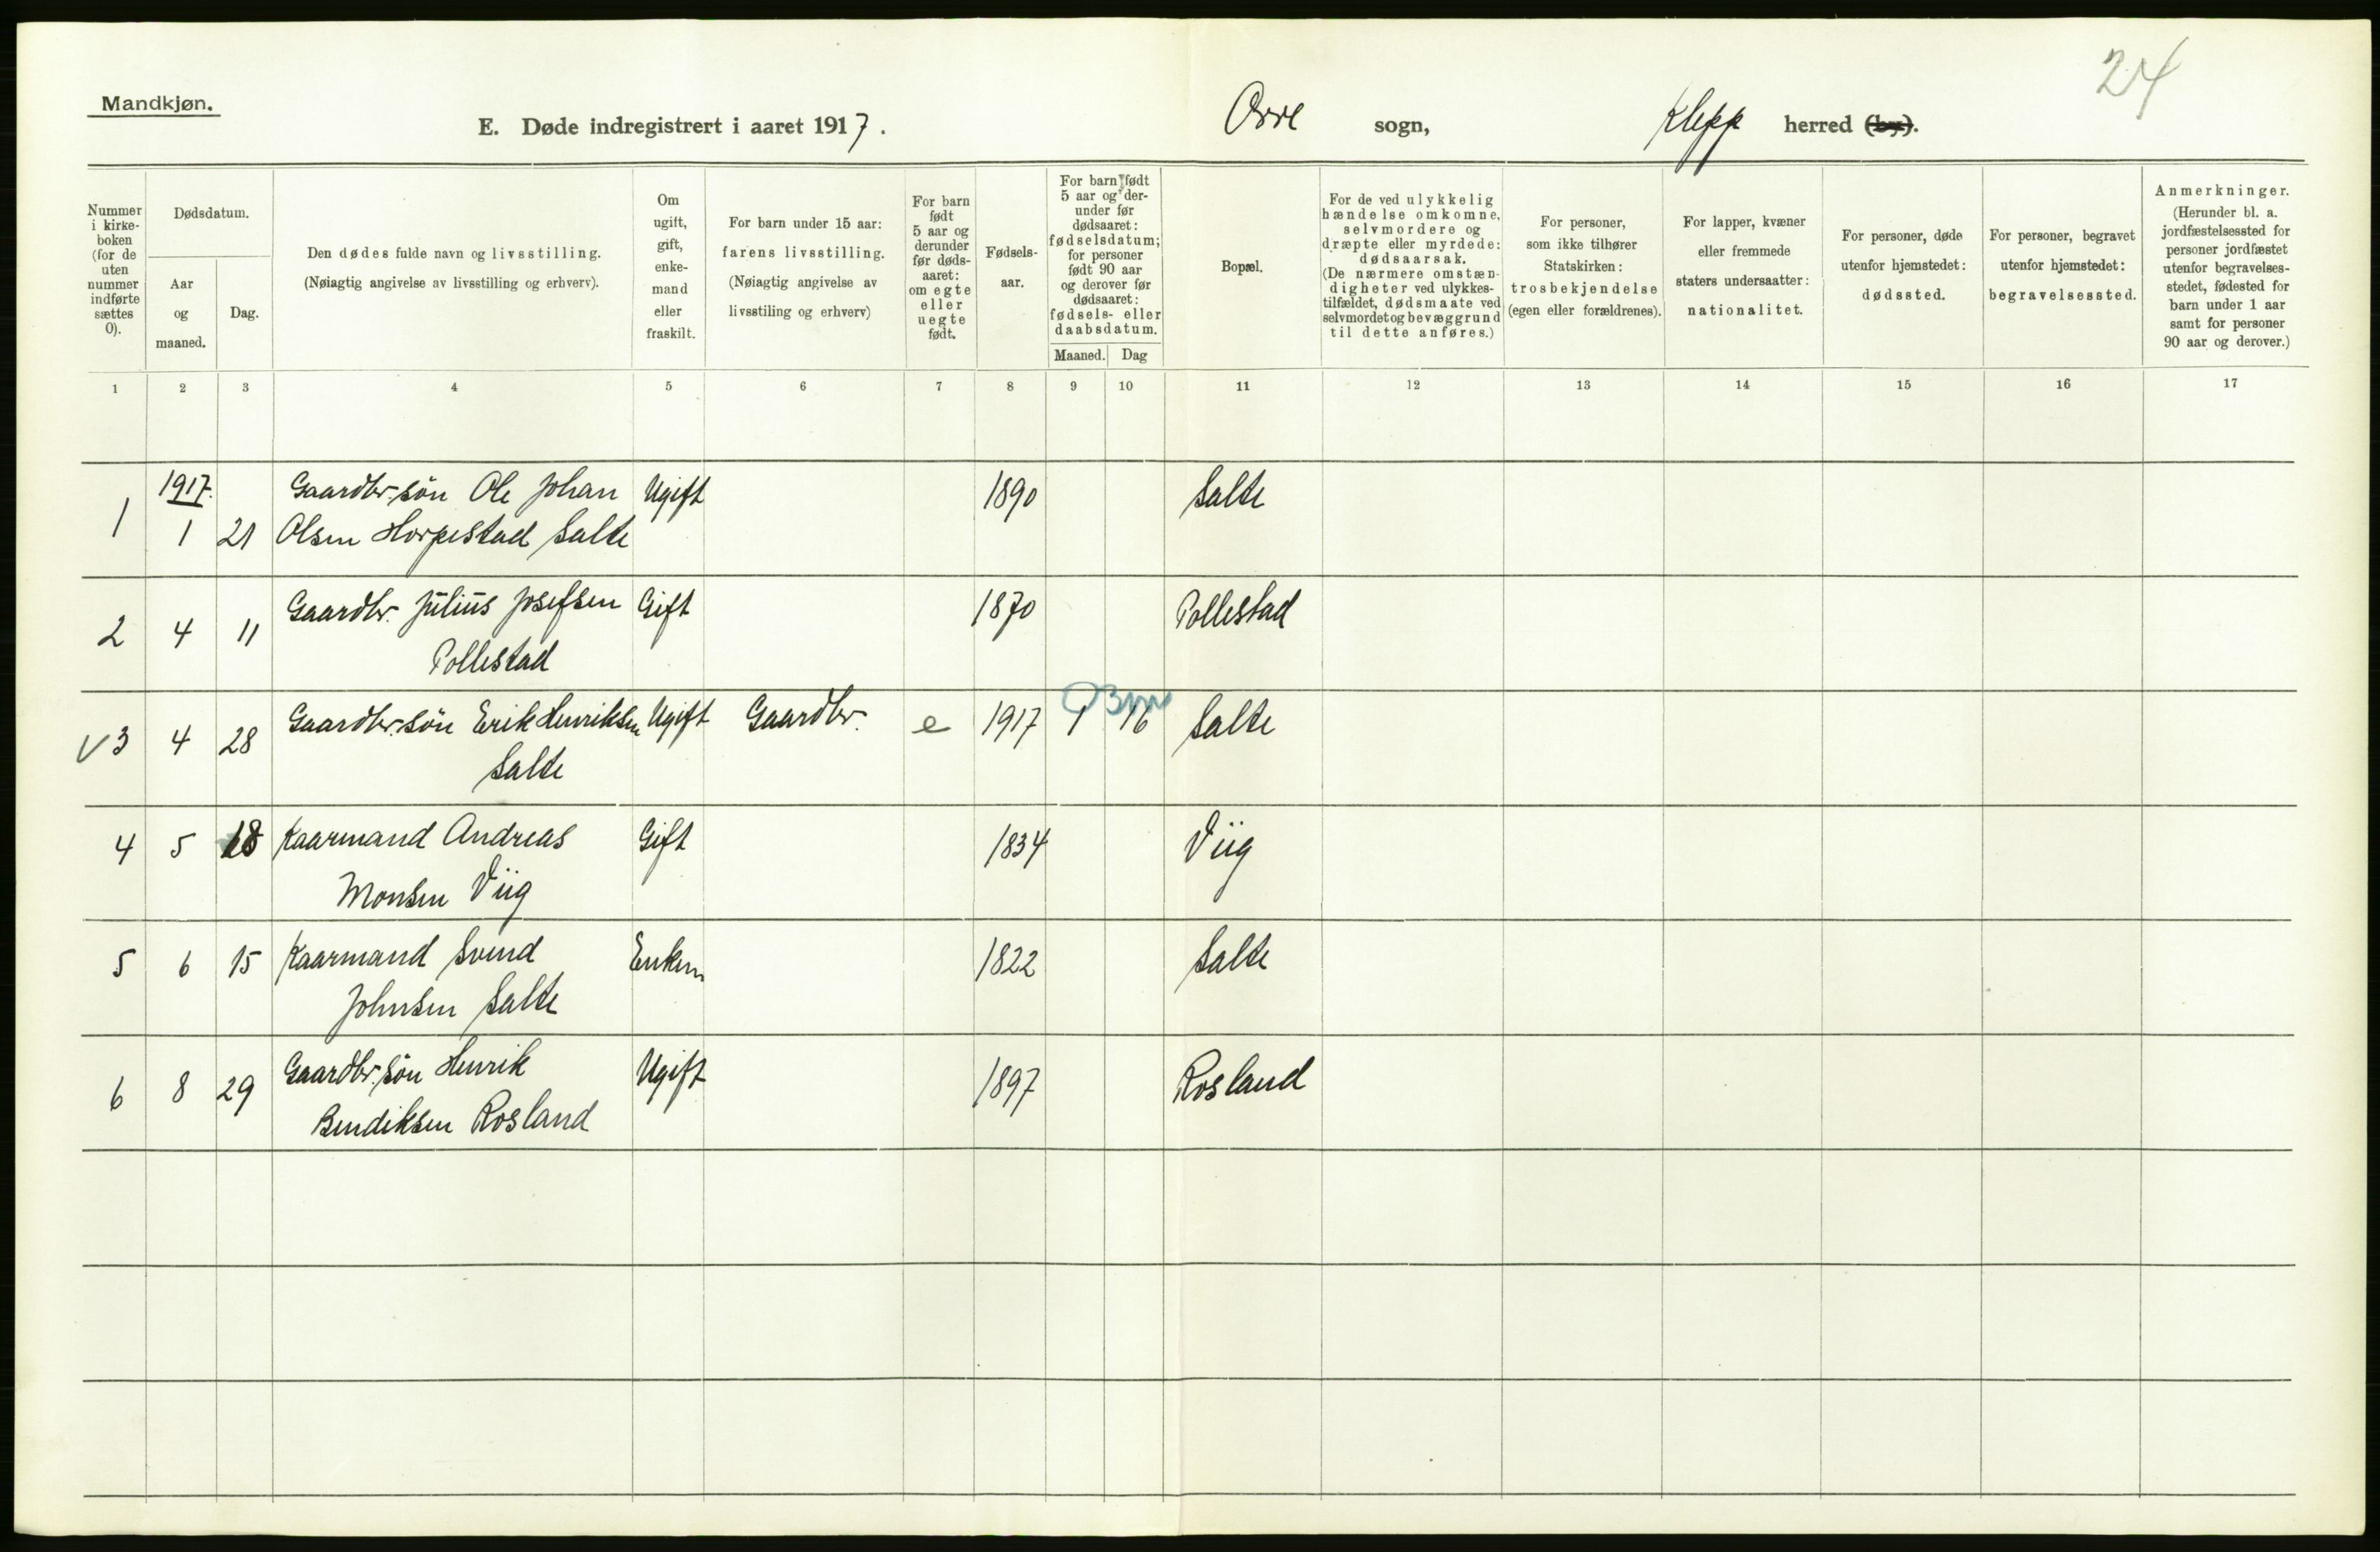 24
Mandkjøn.
E. Døde indregistrert i aaret 1917. Orre sogn, Klepp herred (by).
Nummer i kirke-boken (for de uten nummer indførte sættes 0).
Dødsdatum.
Aar og maaned.
Dag.
Den dødes fulde navn og livsstilling.
(Nøiagtig angivelse av livsstilling og erhverv).
Om ugift, gift, enke-mand eller fraskilt.
For barn under 15 aar:
farens livsstilling.
(Nøiagtig angivelse av livsstiling og erhverv)
For barn født 5 aar og derunder før døds-aaret: om egte eller uegte født.
Fødsels-aar.
For barn født 5 aar og der-under før dødsaaret: fødselsdatum; for personer født 90 aar og derover før dødsaaret: fødsels- eller daabsdatum.
Maaned. Dag
Bopæl.
For de ved ulykkelig hændelse omkomne, selvmordere og dræpte eller myrdede: dødsaarsak.
(De nærmere omstæn-digheter ved ulykkes-tilfældet, dødsmaate ved selvmordet og bevæggrund til dette anføres.)
For personer, som ikke tilhører Statskirken: trosbekjendelse (egen eller forældrenes).
For lapper, kvæner eller fremmede staters undersaatter: nationalitet.
For personer, døde utenfor hjemstedet: dødssted.
For personer, begravet utenfor hjemstedet: begravelsessted.
Anmerkninger.
(Herunder bl. a. jordfæstelsessted for personer jordfæstet utenfor begravelses-stedet, fødested for barn under 1 aar samt for personer 90 aar og derover.)
1 2 3 4 5 6 7 8 9 10 11 12 13 14 15 16 17
1917. Gaardbr. søn Ole Johan Ugift 1890 Salte
1 1 21 Olsen Horpestad Salte
2 4 11 Gaardbr. Julius Josefsen Gift 1870 Pollestad
Pollestad
V 3 4 28 Gaardbr. søn Erik Henriksen Ugift Gaardbr. e 1917 1 16 Salte
Salte
4 5 18 Kaarmand Andreas Gift 1834 Viig
Monsen Viig
5 6 15 Kaarmand Svend Enkem 1822 Salte
Johnsen Salte
6 8 29 Gaardbr. søn Henrik Ugift 1897 Rosland
Bendiksen Rosland